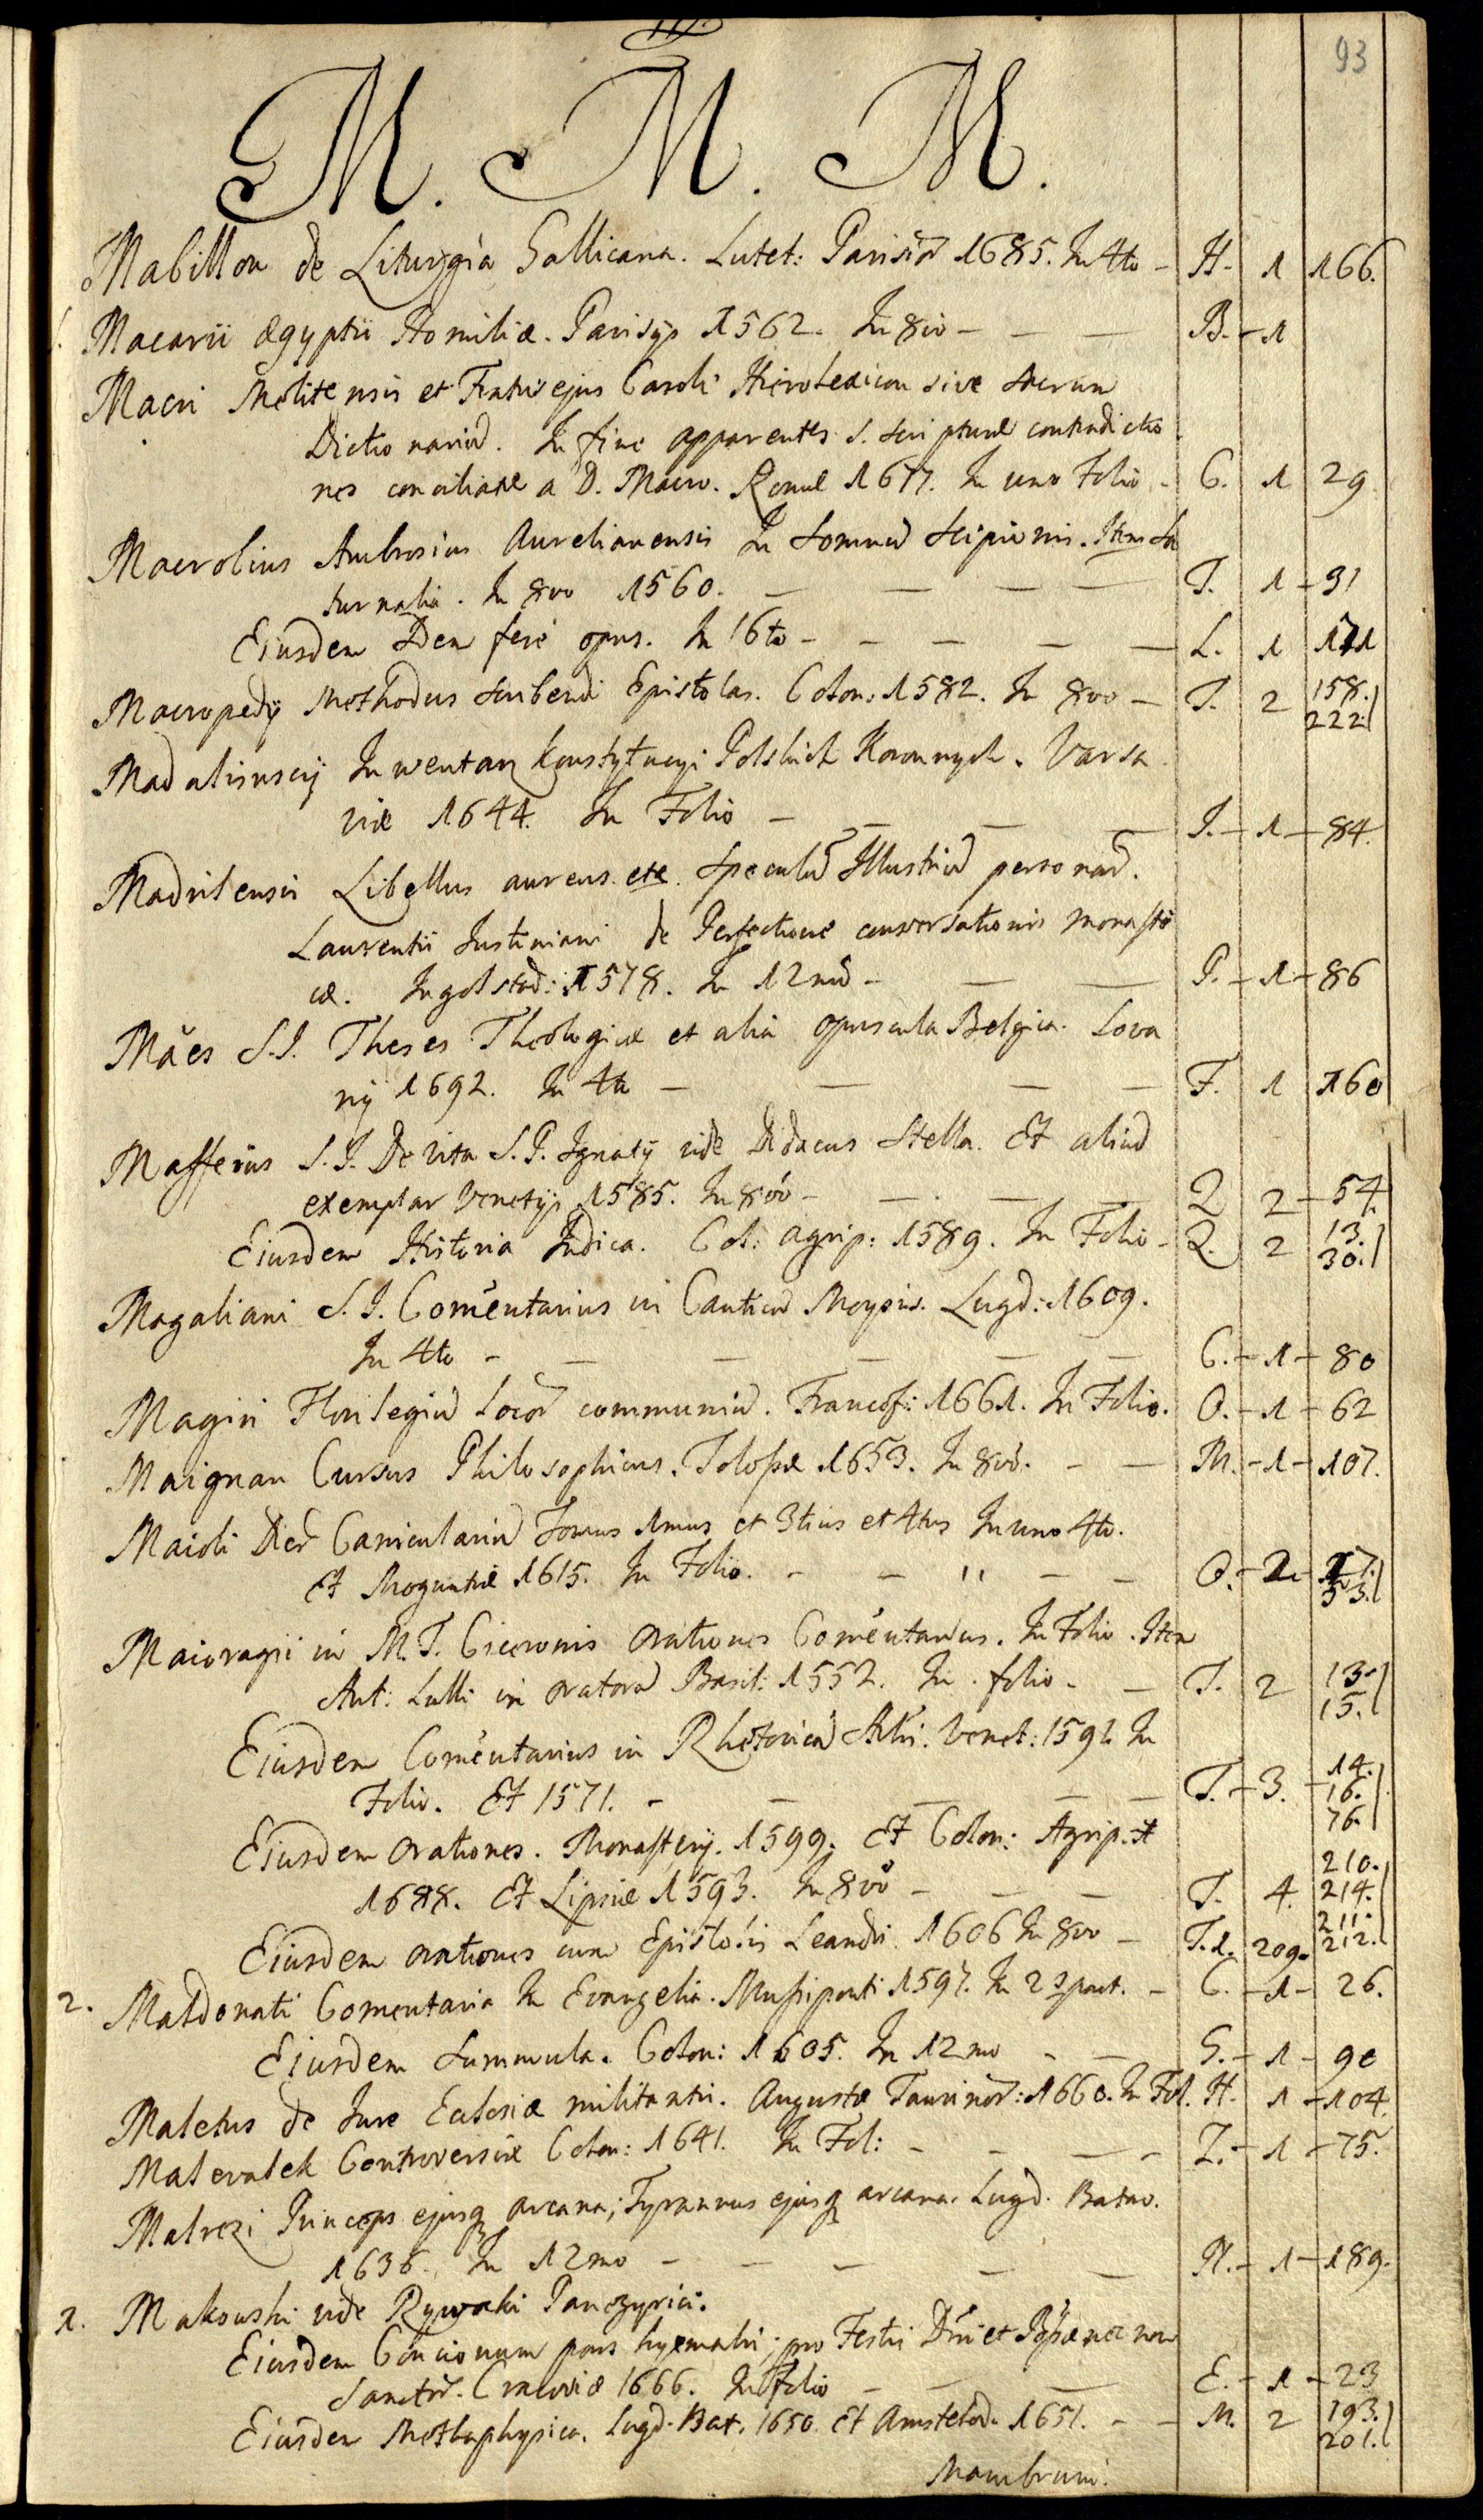 93
M. M. M.
Mabillon de Liturgia Gallicana. Lutet: Parisior 1685. In 4to - H - 1 166.
Macarii Ægyptii Homiliæ. Parisÿs 1562. In 8vo - - - B. - 1
Macri Melitensis et Fratris ejus Caroli Hierolexicon sive Sacrum
Dictionariũ. In fine apparentes S. Scripturæ contradictio
nes conciliatæ a D. Macro. Romæ 1677. In uno Folio - C. 1 29
Macrobius Ambrosius Aurelianensis In Somniũ Scipionis. Item Sa
turnalia. In 8vo 1560. - - - - T. 1 - 31
Eiusdem Idem ferè opus. In 16to - - - - L. 1 171
Macropedÿ Methodus scribendi Epistolas. Colon: 1582. In 8vo - T. 2 158.
222.
Madalinscÿ Inwentarz Konstytucyi Polskich Koronnych. Varsa
viæ 1644. In Folio - - - - I. - 1 - 84.
Madritensis Libellus aureus etc. Speculũ Illustriũ personarũ.
Laurentii Iustiniani de Perfectione conversationis Monasti
cæ. Ingolstad: 1578. In 12mo - - - P. - 1 - 86
Mäes S.I. Theses Theologicæ et alia opuscula Belgica. Lova
nÿ 1692. In 4to - - - - F. 1 160
Maffeius S.I. De Vita S.P. Ignatÿ vide Didacus Stella. Et aliud
exemplar Venetÿs 1585. In 8vo - - - - Q 2 - 54.
Eiusdem Historia Indica. Col: Agrip: 1589. In Folio - Q. 2 13.
30.
Magaliani S.I. Comẽntarius in Canticũ Moysis. Lugd: 1609.
In 4to - - - - - - C. - 1 - 80
Magiri Florilegiũ Locor communiũ. Francof: 1661. In Folio. O. - 1 - 62
Maignan Cursus Philosophicus. Tolosæ 1653. In 8vo. - - M. - 1 - 107.
Maioli Dier Caniculariũ Tomus 1mus et 3tius et 4tus In uno 4to.
Et Moguntiæ 1615. In Folio. - - " - - O. - 2 - 17.
53.
Maioragii in M.T. Ciceronis Orationes Comẽntarius. In Folio. Item
Ant: Lulli in oratorẽ Basil: 1552. In folio - - T. 2 13.
15.
Eiusdem Comẽntarius in Rhetoricã Arist. Venet: 1591. In
Folio. Et 1571. - - - - - T. - 3. - 14.
16.
76.
Eiusdem Orationes. Monasterÿ. 1599. Et Colon: Agrip. A
1688. Et Lipsiæ 1593. In 8vo - - - T. 4. 210.
214.
211.
212.
Eiusdem Orationes cum Epistolis Leandri. 1606 In 8vo - T. 1. 209.
2. Maldonati Comentaria In Evangelia. Mussiponti 1597. In 2 part. - C. - 1 - 26.
Eiusdem Summula. Colon: 1605. In 12mo - - S. - 1 - 90
Maletus de Iure Eclesiæ militantis. Augustæ Taurinor: 1660. In Fol. H. 1 - 104.
Malevalek Controversiæ Colon: 1641. In Fol: - - - - Z. - 1 - 75.
Malvezi Princeps ejusq arcana; Tyrannus ejusq arcana. Lugd. Batav.
1636. In 12mo - - - - - N. - 1 - 189.
1. Makowski vide Rywocki Panegyrici.
Eiusdem Concionum pars hyemalis; pro Festis Dni et Bssæ nec non
Sanctor. Cracoviæ 1666. In folio - - - E. - 1 - 23
Eiusdem Methaphysica. Lugd. Bat. 1650. Et Amstelod. 1651. - - M. 2 193.
201.
Mambruni.